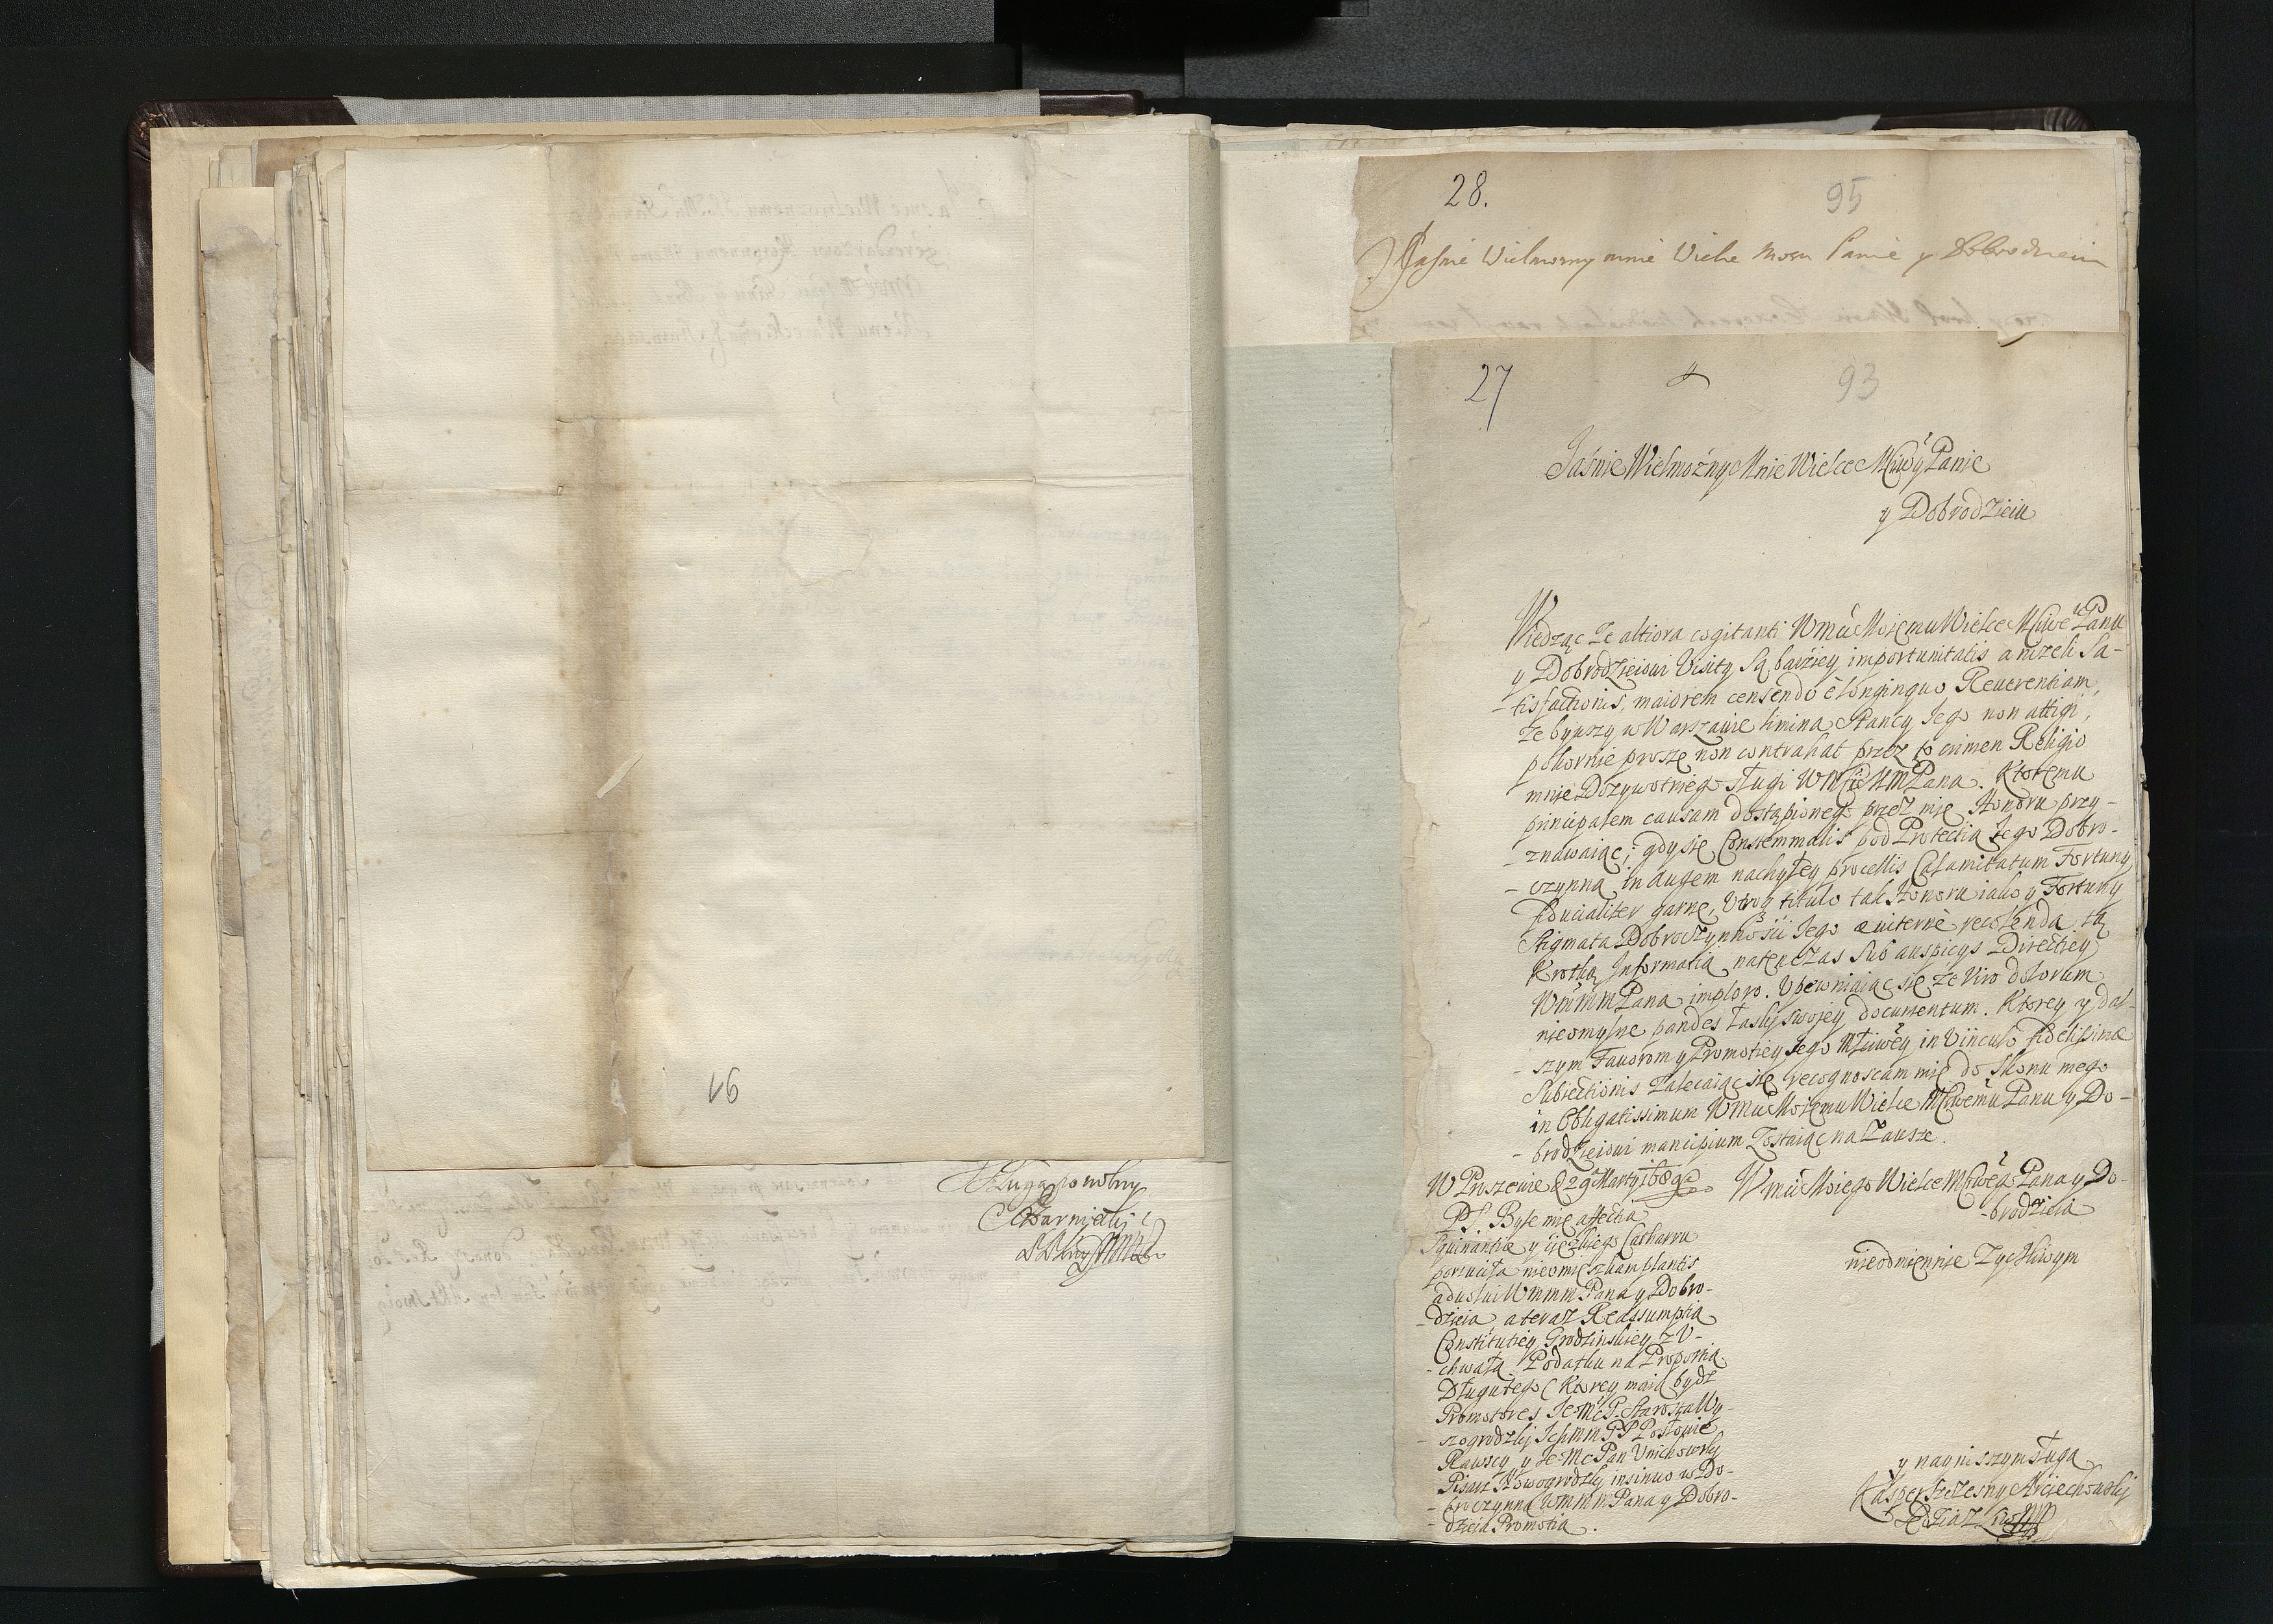 92
Sługa powolny
Czarniecki
28.
95
Jasnie Wielmozny mnie Wielce Mosci Panie y Dobrodzieiu
27
93
Jaśnie Wielmożny Mnie Wielce Mćiwy Panie
y Dobrodzieiu
Wiedząc że altiora cogitanti Wmć Moiemu Wielce Mćiwe Panu
y Dobrodzieiowi Visity są barziey importunitatis aniżeli Sa-
-tisfactionis, maiorem censendo è longinquo Reverentiam,
że bywszy w Warszawie limina Stancy Iego non attigi,
pokornie proszę non contrahat przez to crimen Religio
mnie Dożywotniego sługi WMMPana. Ktoremu
principalem causam dostąpionego przez mię Honoru przy-
-znawaiąc, gdy się Consemmalis pod Protectią Iego Dobro-
-czynną in augem nachyłey procellis Calamitatum Fortuny
fiducialiter garnę, Vtroq titulo tak Honoru iako y Fortuny
Stigmata Dobroczynności Iego æviternè recolenda tą
Krotką Informatią natenczas sub auspicys Directiey
WmmmPana imploro. Vpewniaiąc się że viro dolorum
nieomylne pandes łaski swoiey documentum. Ktorey y dal-
-szym Favorom y Promotiey Iego Mćiwey in Vinculo fidelissimæ
Subiectionis zalecaiąc się recognoscam mię do skonu mego
in Obligatissimum Wmć Moiemu Wielce Mćiwemu Panu y Do-
-brodzieiowi mancipium Zostaiąc na Zawsze.
W Pruszewie D 29 Marty 1689
Wmć Moiego Wielce Mćiwego Pana y Do-
-brodzieia
nieodmiennie Życzliwym
y nayniszszym sługą
Kasper Szczesny Arciechowskj
PS. Byle mię affectia
Squinantiæ y ciężkiego Catharru
porzuciła nieomieszkam
WmmmPana y Dobro-
-dzieia a teraz Reassumptią
Constitutiey Grodzinskiey z V-
-chwałą Podatku na Proporcią
Długu tego (Ktorey maią bydz
Promotores Ie Mć P. Starosta Wy-
-szogrodzkj Ichmm PP Posłowie
Rawscy y Ie Mć Pan
Pisarz Nowogrodzkj insinuo w Do-
-broczynną Wmmm Pana y Dobro-
-dzieia Promotią.